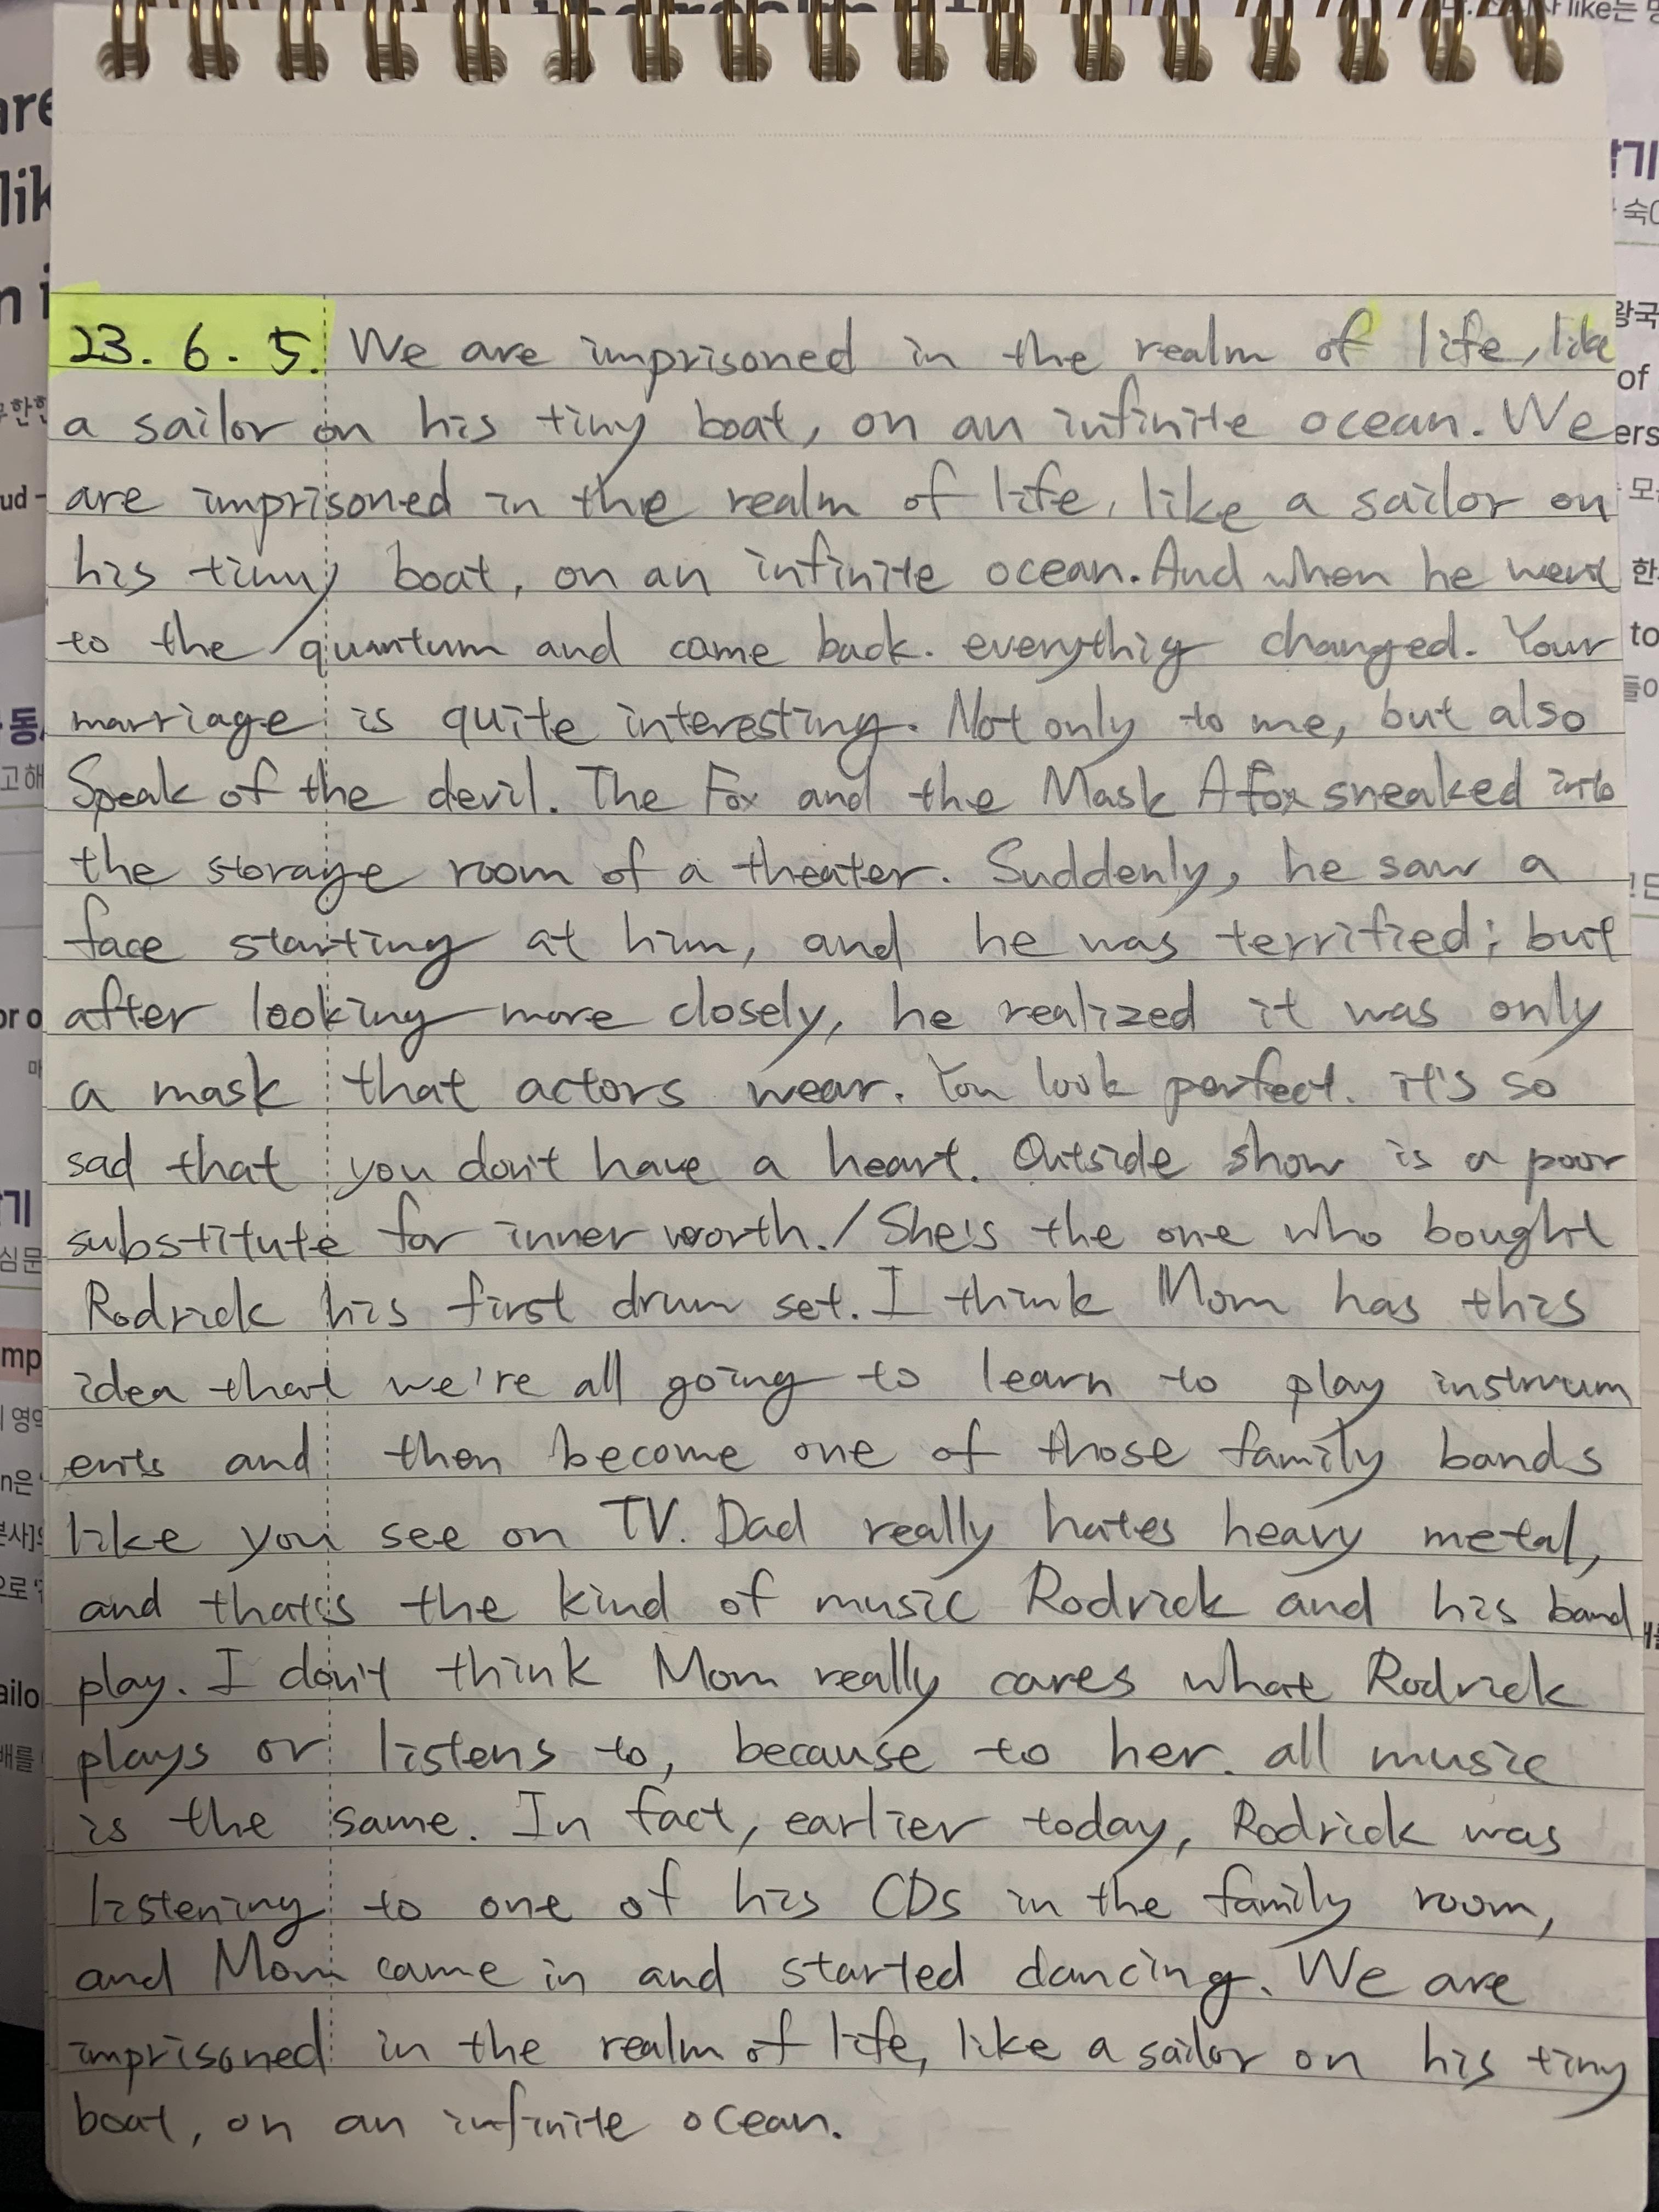 23. 6. 5. We are imprisoned in the realm of life, like
a sailor on his tiny boat, on an infinite ocean. We
are imprisoned in the realm of life, like a sailor on
his tiny boat, on an infinite ocean. And when he went
to the quantum and came back. everythig changed. Your
marriage is quite interesting. Not only to me, but also
Speak of the devil. The Fox and the Mask A fox sneaked into
the storage room of a theater. Suddenly, he saw a
face starting at him, and he was terrified; but
after looking more closely, he realized it was only
a mask that actors wear. You look perfect. it's so
sad that you don't have a heart. Outside show is a poor
substitute for inner worth. / She's the one who bought
Rodrick his first drum set. I think Mom has this
idea that we're all going to learn to play instrum
ents and then become one of those family bands
like you see on TV. Dad really hates heavy metal,
and that's the kind of music Rodrick and his band
play. I don't think Mom really cares what Rodrick
plays or listens to, because to her. all music
is the same. In fact, earlier today, Rodrick was
listening to one of his CDs in the family room,
and Mom came in and started dancing. We are
imprisoned in the realm of life, like a sailor on his tiny
boat, on an infinite ocean.